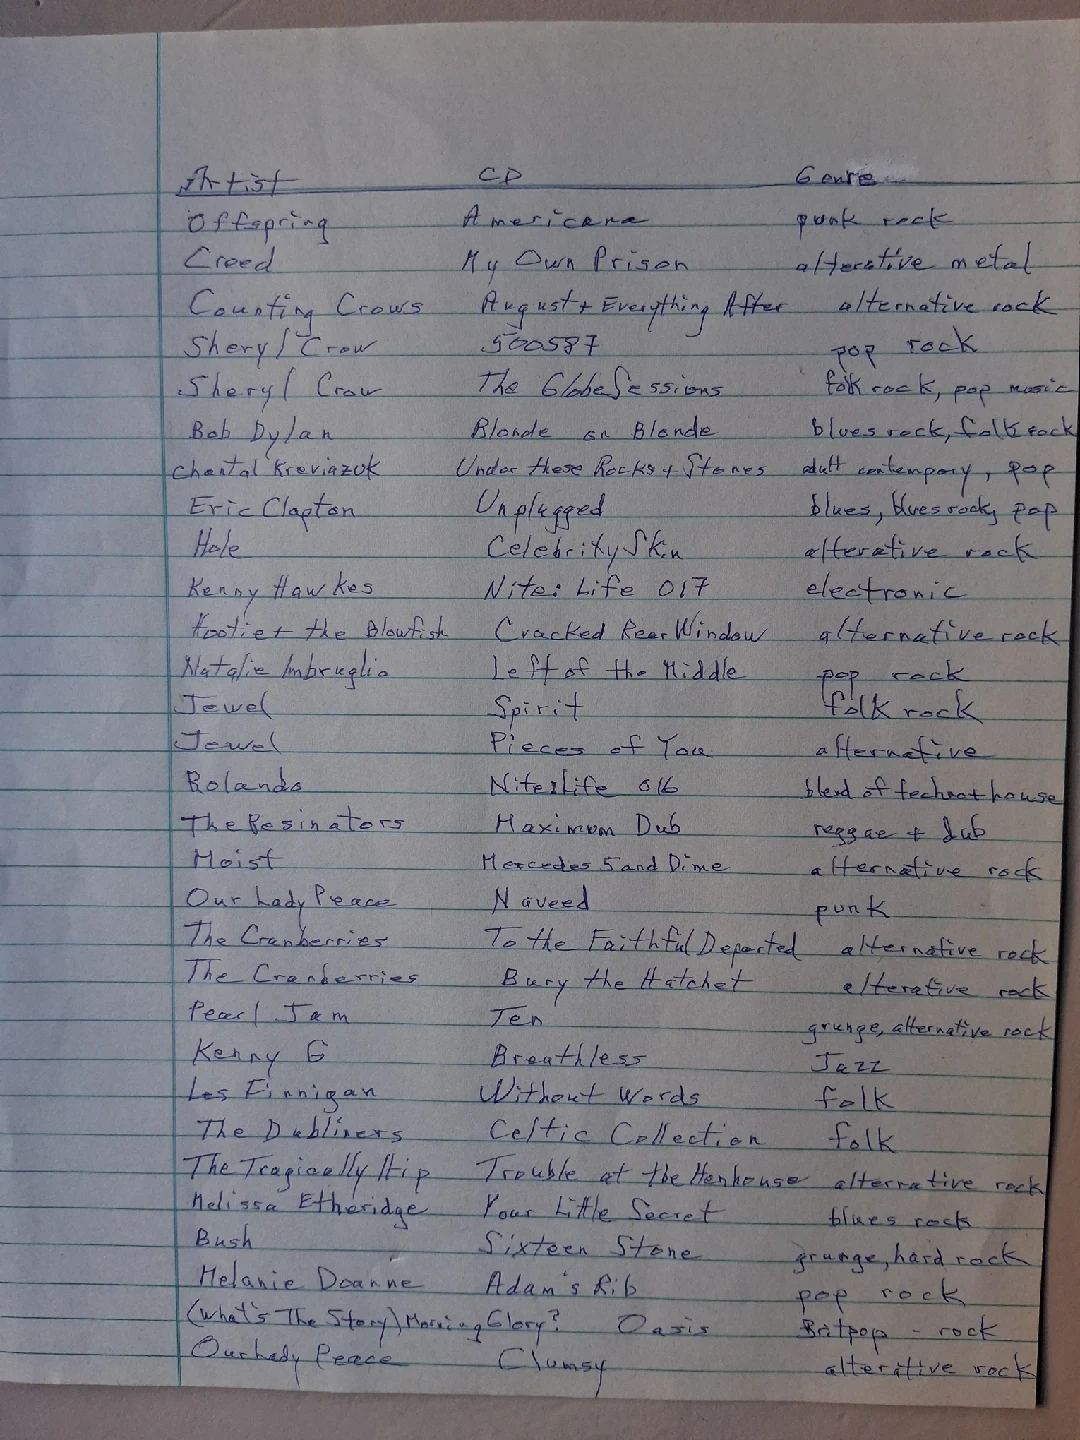 Artist CD Genre
Offspring Americana punk rock
Creed My Own Prison alterative metal
Counting Crows August + Everything After alternative rock
Sheryl Crow 500587 pop rock
Sheryl Crow The Globe Sessions folk rock, pop music
Bob Dylan Blonde on Blonde blues rock, folk rock
Chantal Kreviazuk Under these Rocks + Stones adult contempory, pop
Eric Clapton Unplugged blues, blues rock, pop
Hole Celebrity Skin alterative rock
Kenny Hawkes Nite: Life 017 electronic
Hootie + the Blowfish Cracked Rear Window alternative rock
Natalie Imbruglia Left of the Middle pop rock
Jewel Spirit folk rock
Jewel Pieces of You alternative
Rolando Nite:Life 016 blend of house
The Resinators Maximum Dub reggae + dub
Moist Mercedes 5 and Dime alternative rock
Our Lady Peace Naveed punk
The Cranberries To the Faithful Departed alternative rock
The Cranberries Bury the Hatchet alterative rock
Pearl Jam Ten grunge, alternative rock
Kenny G Breathless Jazz
Les Finnigan Without Words folk
The Dubliners Celtic Collection folk
The Tragically Hip Trouble at the Henhouse alternative rock
Melissa Etheridge Your Little Secret blues rock
Bush Sixteen Stone grunge, hard rock
Melanie Doanne Adam's Rib pop rock
(What's The Story) Morning Glory? Oasis Britpop - rock
Our Lady Peace Clumsy alteritive rock